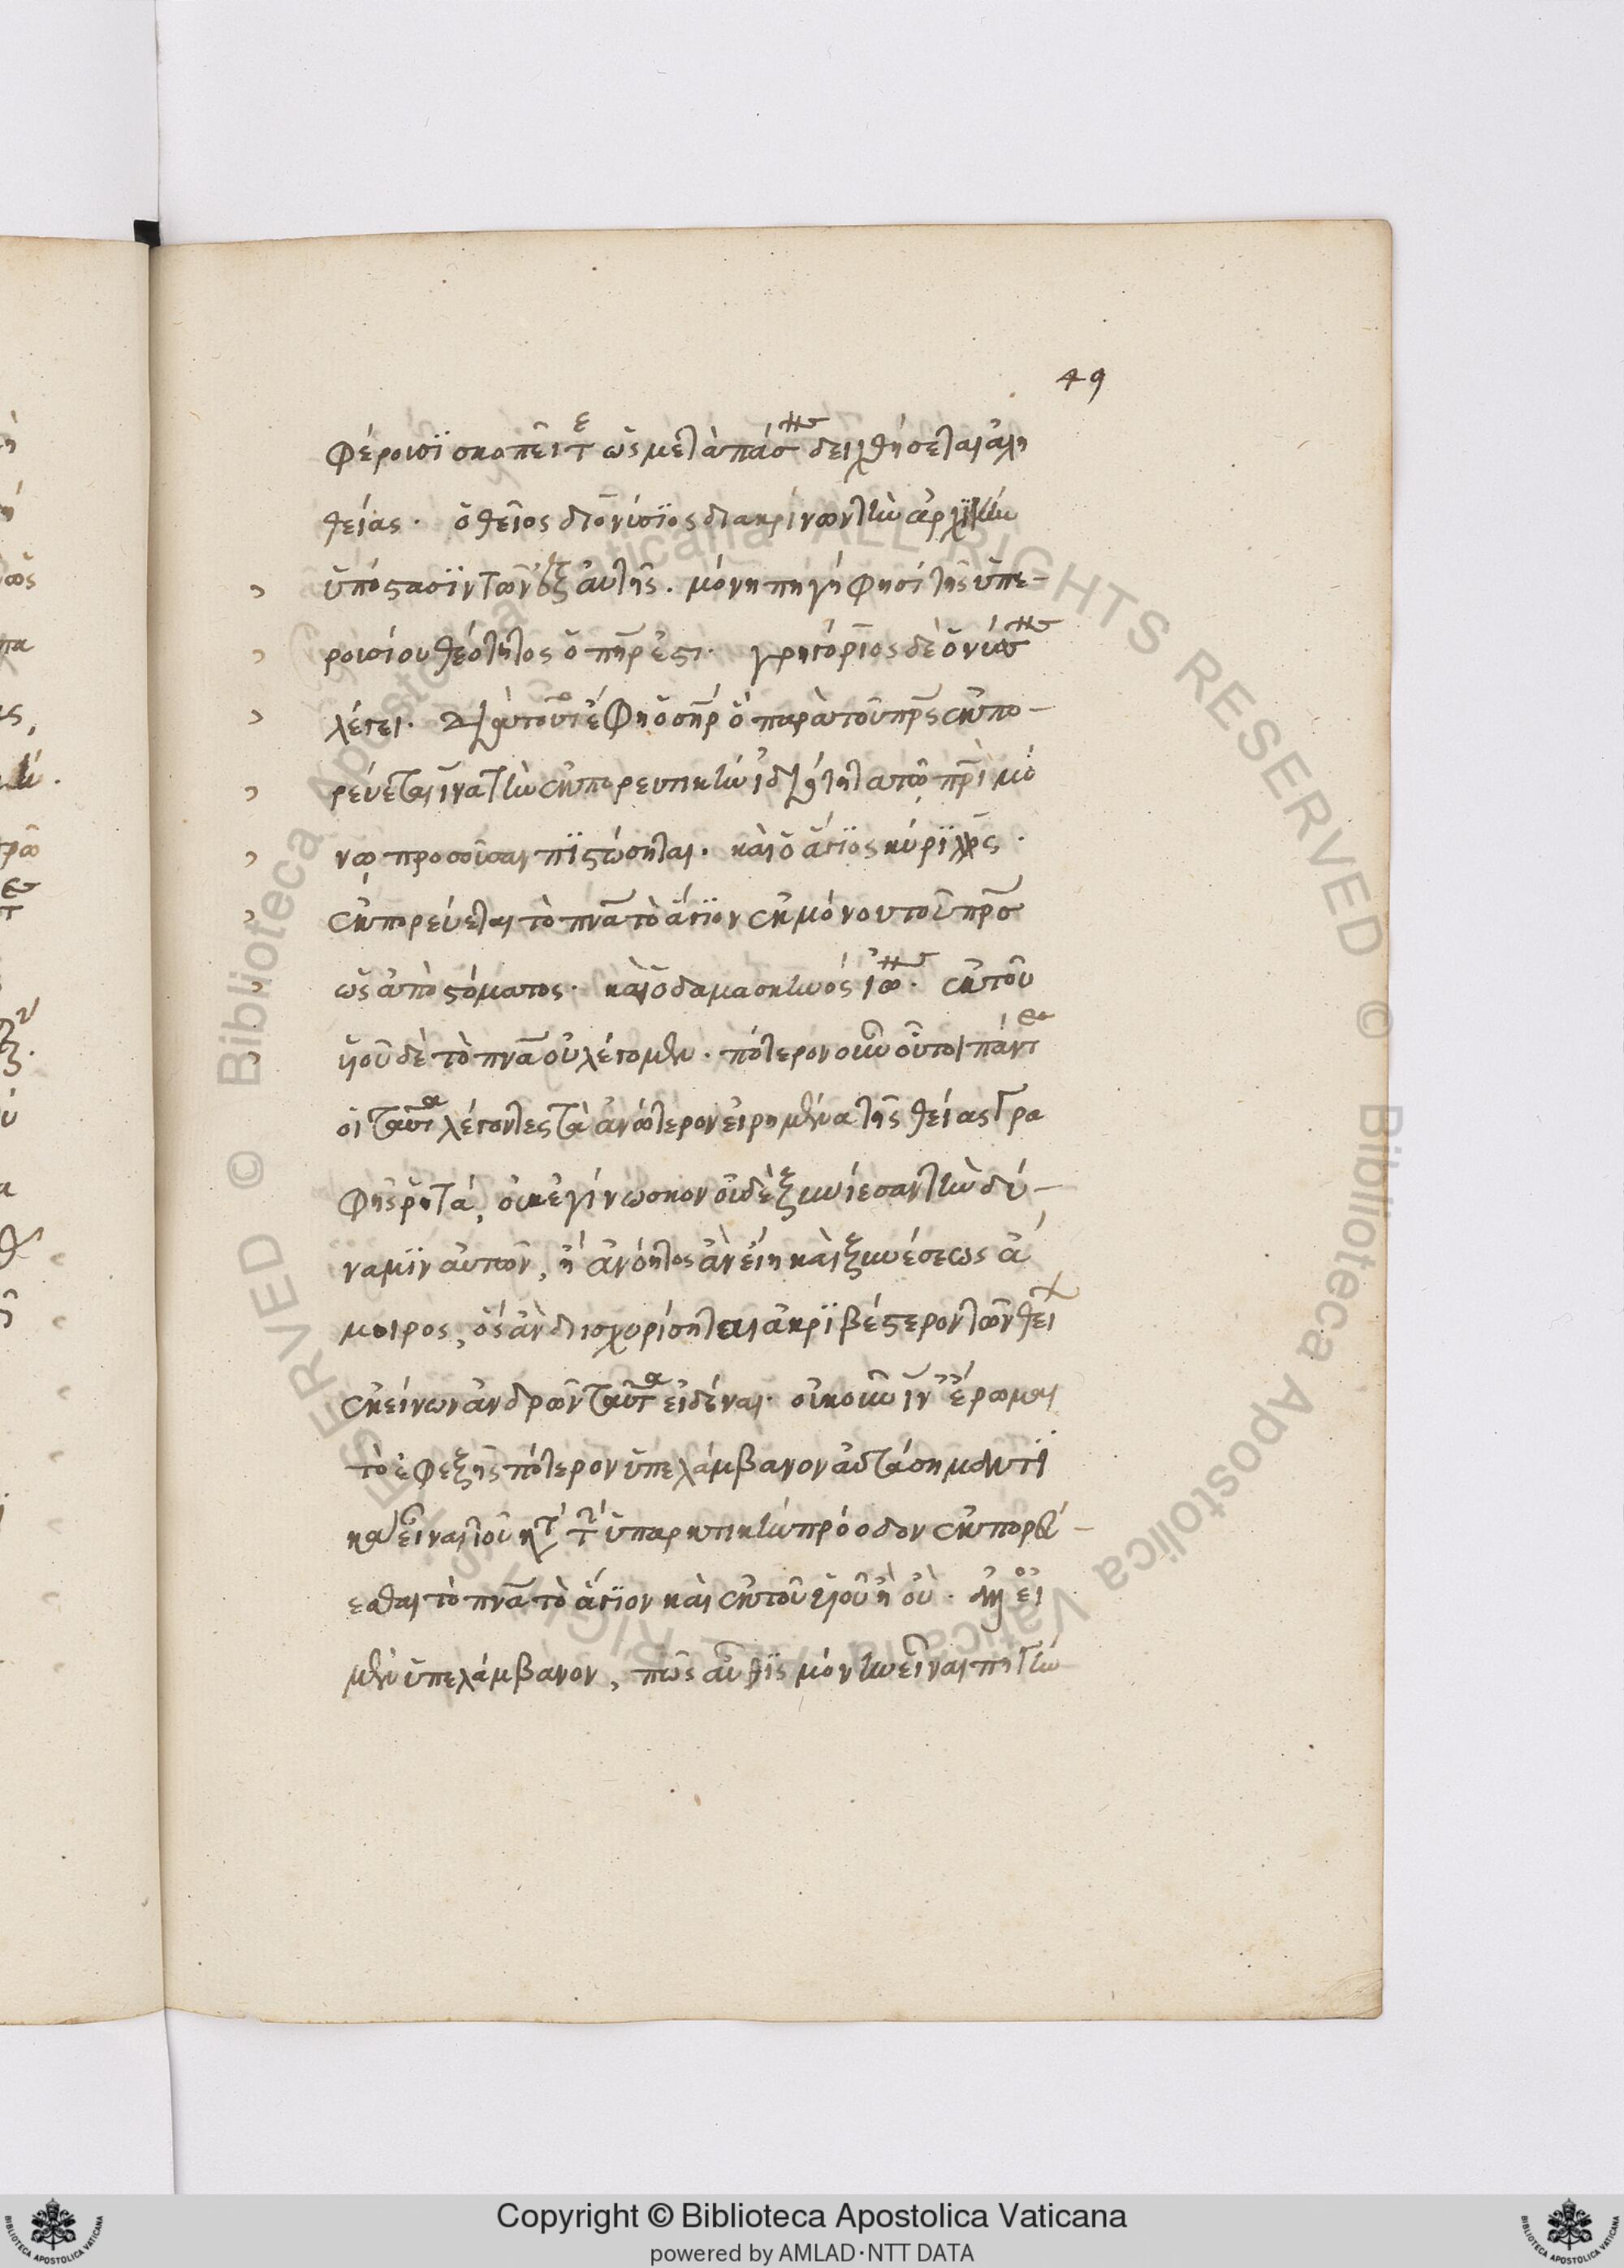 49
φέροισϊ σκοπεῖτε ὡς μετὰ πάσης δειχθήσεται ἀλη
θείας. ὁ θεῖος διονύσϊος διακρίνων τὴν ἀρχϊκὴν
ὑπόστασϊν τῶν ἐξ αὐτῆς. μόνη πηγή φησί τῆς ὑπε-
ρουσίου θεότητος ὁ πηρ ἐστι. γρηγόριος δὲ ὁ νύσης
λέγει. διὰ τοῦτο ἔφη ὁ σηρ ὃ παρὰ τοῦ πρς ἐκπο-
ρεύεται ἵνα τὴν ἐκπορευτικὴν ἰδιότητα τῶ πρὶ μό
νω προσοῦσαν πϊστώσηται. καὶ ὁ ἅγϊος κύριλλος.
ἐκπορεύεται τὸ πνα τὸ ἅγϊον ἐκ μόνου τοῦ πρσ
ὡς ἀπὸ στόματος. καὶ ὁ δαμασκηνός ἰωης. ἐκ τοῦ
ὑιοῦ δὲ τὸ πνα οὐ λέγομεν. πότερον οὖν οὗτοι πάντες
οἱ ταῦτα λέγοντες τὰ ἀνώτερον εἰρημένα τῆς θείας γρα
φῆς ῥητά, οὐκ ἐγίνωσκον οὐδὲ ξυνίεσαν τὴν δύ-
ναμϊν αὐτῶν, ἢ ἀνόητος ἂν εἴη καὶ ξυνέσεως ἄ
μοιρος, ὃς ἂν διισχυρίσηται ἀκριβέστερον τῶν θείων
ἐκείνων ἀνδρῶν ταῦτα εἰδέναι. οὐκοῦν ἵν' ἔρωμαι
τὸ ἐφεξῆς πότερον ὑπελάμβανον αὐτὰ σημαντϊ
κὰ εἶναι τοῦ κατὰ τὴν ὑπαρκτικὴν πρόοδον ἐκπορεύ-
εσθαι τὸ πνα τὸ ἅγϊον καὶ ἐκ τοῦ ὑιοῦ ἢ οὐ. ἀλλ' εἰ
μὲν ὑπελάμβανον, πῶς αὖθϊς μόνην εἶναι πηγὴν